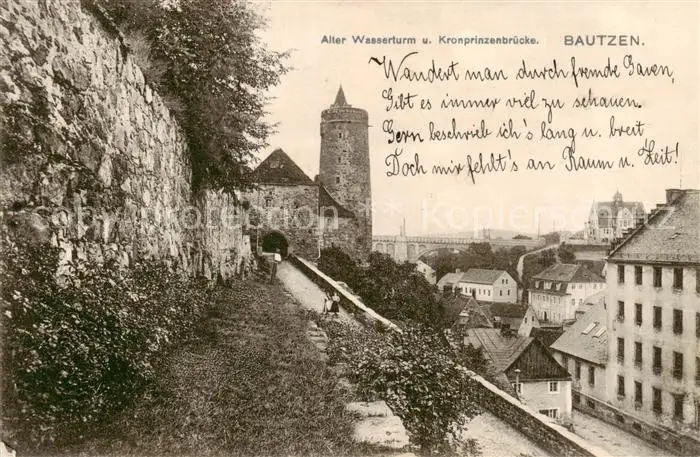 Alter Wasserturm u. Kronprinzenbrücke. BAUTZEN.
Wandert man durch fremde Gauen,
Gibt es immer viel zu schauen.
Gern beschrieb ich's lang u. breit
Doch mir fehlt's an Raum u. Zeit!